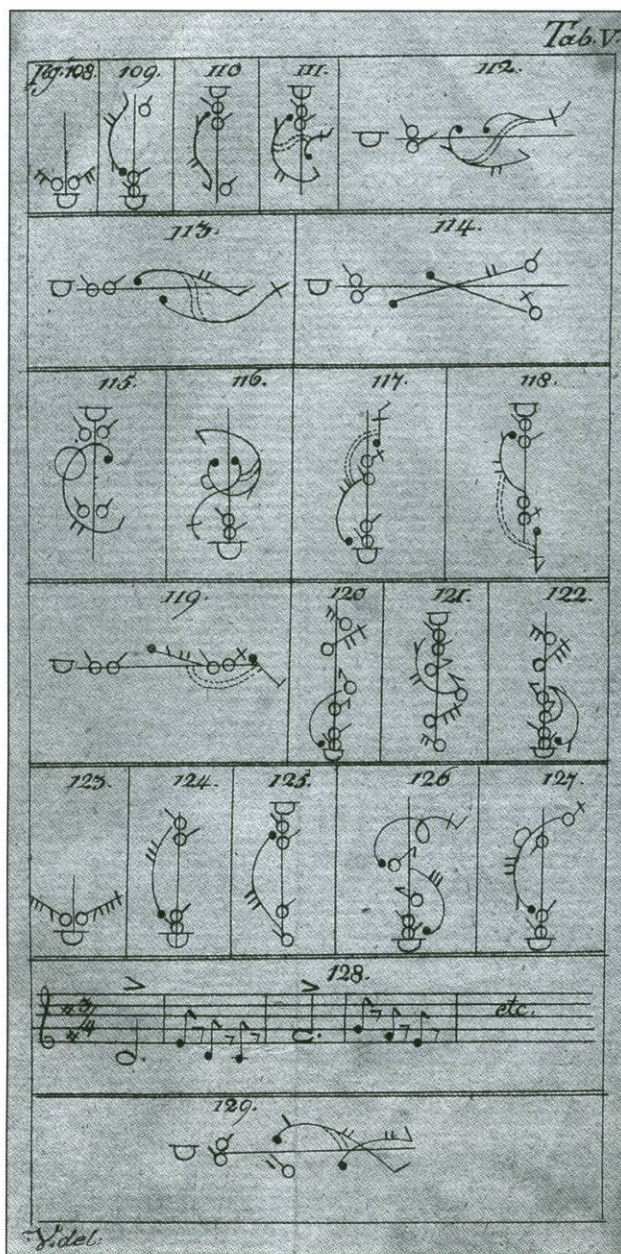 Tab. V.
fig. 108. 109. 110 111. 112.
113. 114.
115. 116. 117. 118.
119. 120 121. 122.
123. 124. 125. 126 127.
128.
3/4 etc.
129.
V. del: